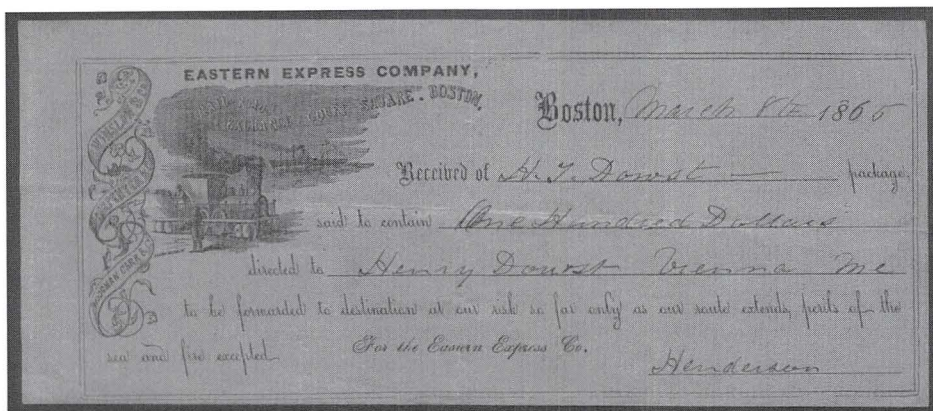 EASTERN EXPRESS COMPANY,
COURT SQUARE. BOSTON.
WINSLOW & CO.
CARPENTER & CO.
HODGMAN, CARR & CO.
Boston, March 8th 1865
Received of H. T. Dowst — package,
said to contain One Hundred Dollars
directed to Henry Dowst Vienna Me
to be forwarded to destination at our risk so far only as our route extends, perils of the
sea and fire excepted.
For the Eastern Express Co.
Henderson